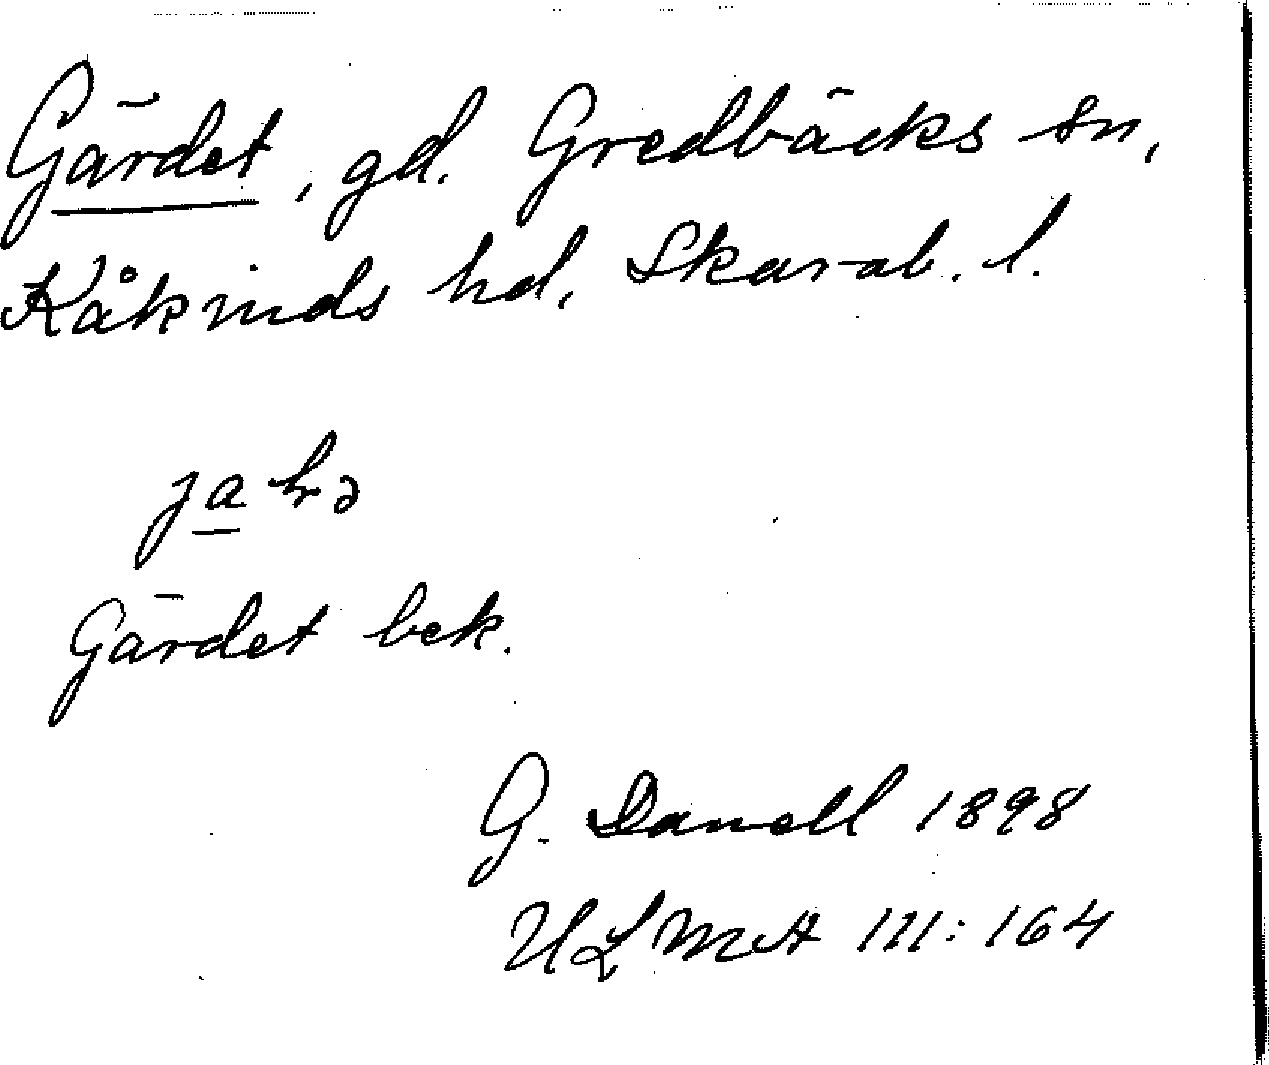 Gärdet, gd. Gredbäcks sn,
Kåkinds hd, Skarab. l.
Gärdet bek.
G. Danell 1898
ULMA 111:164